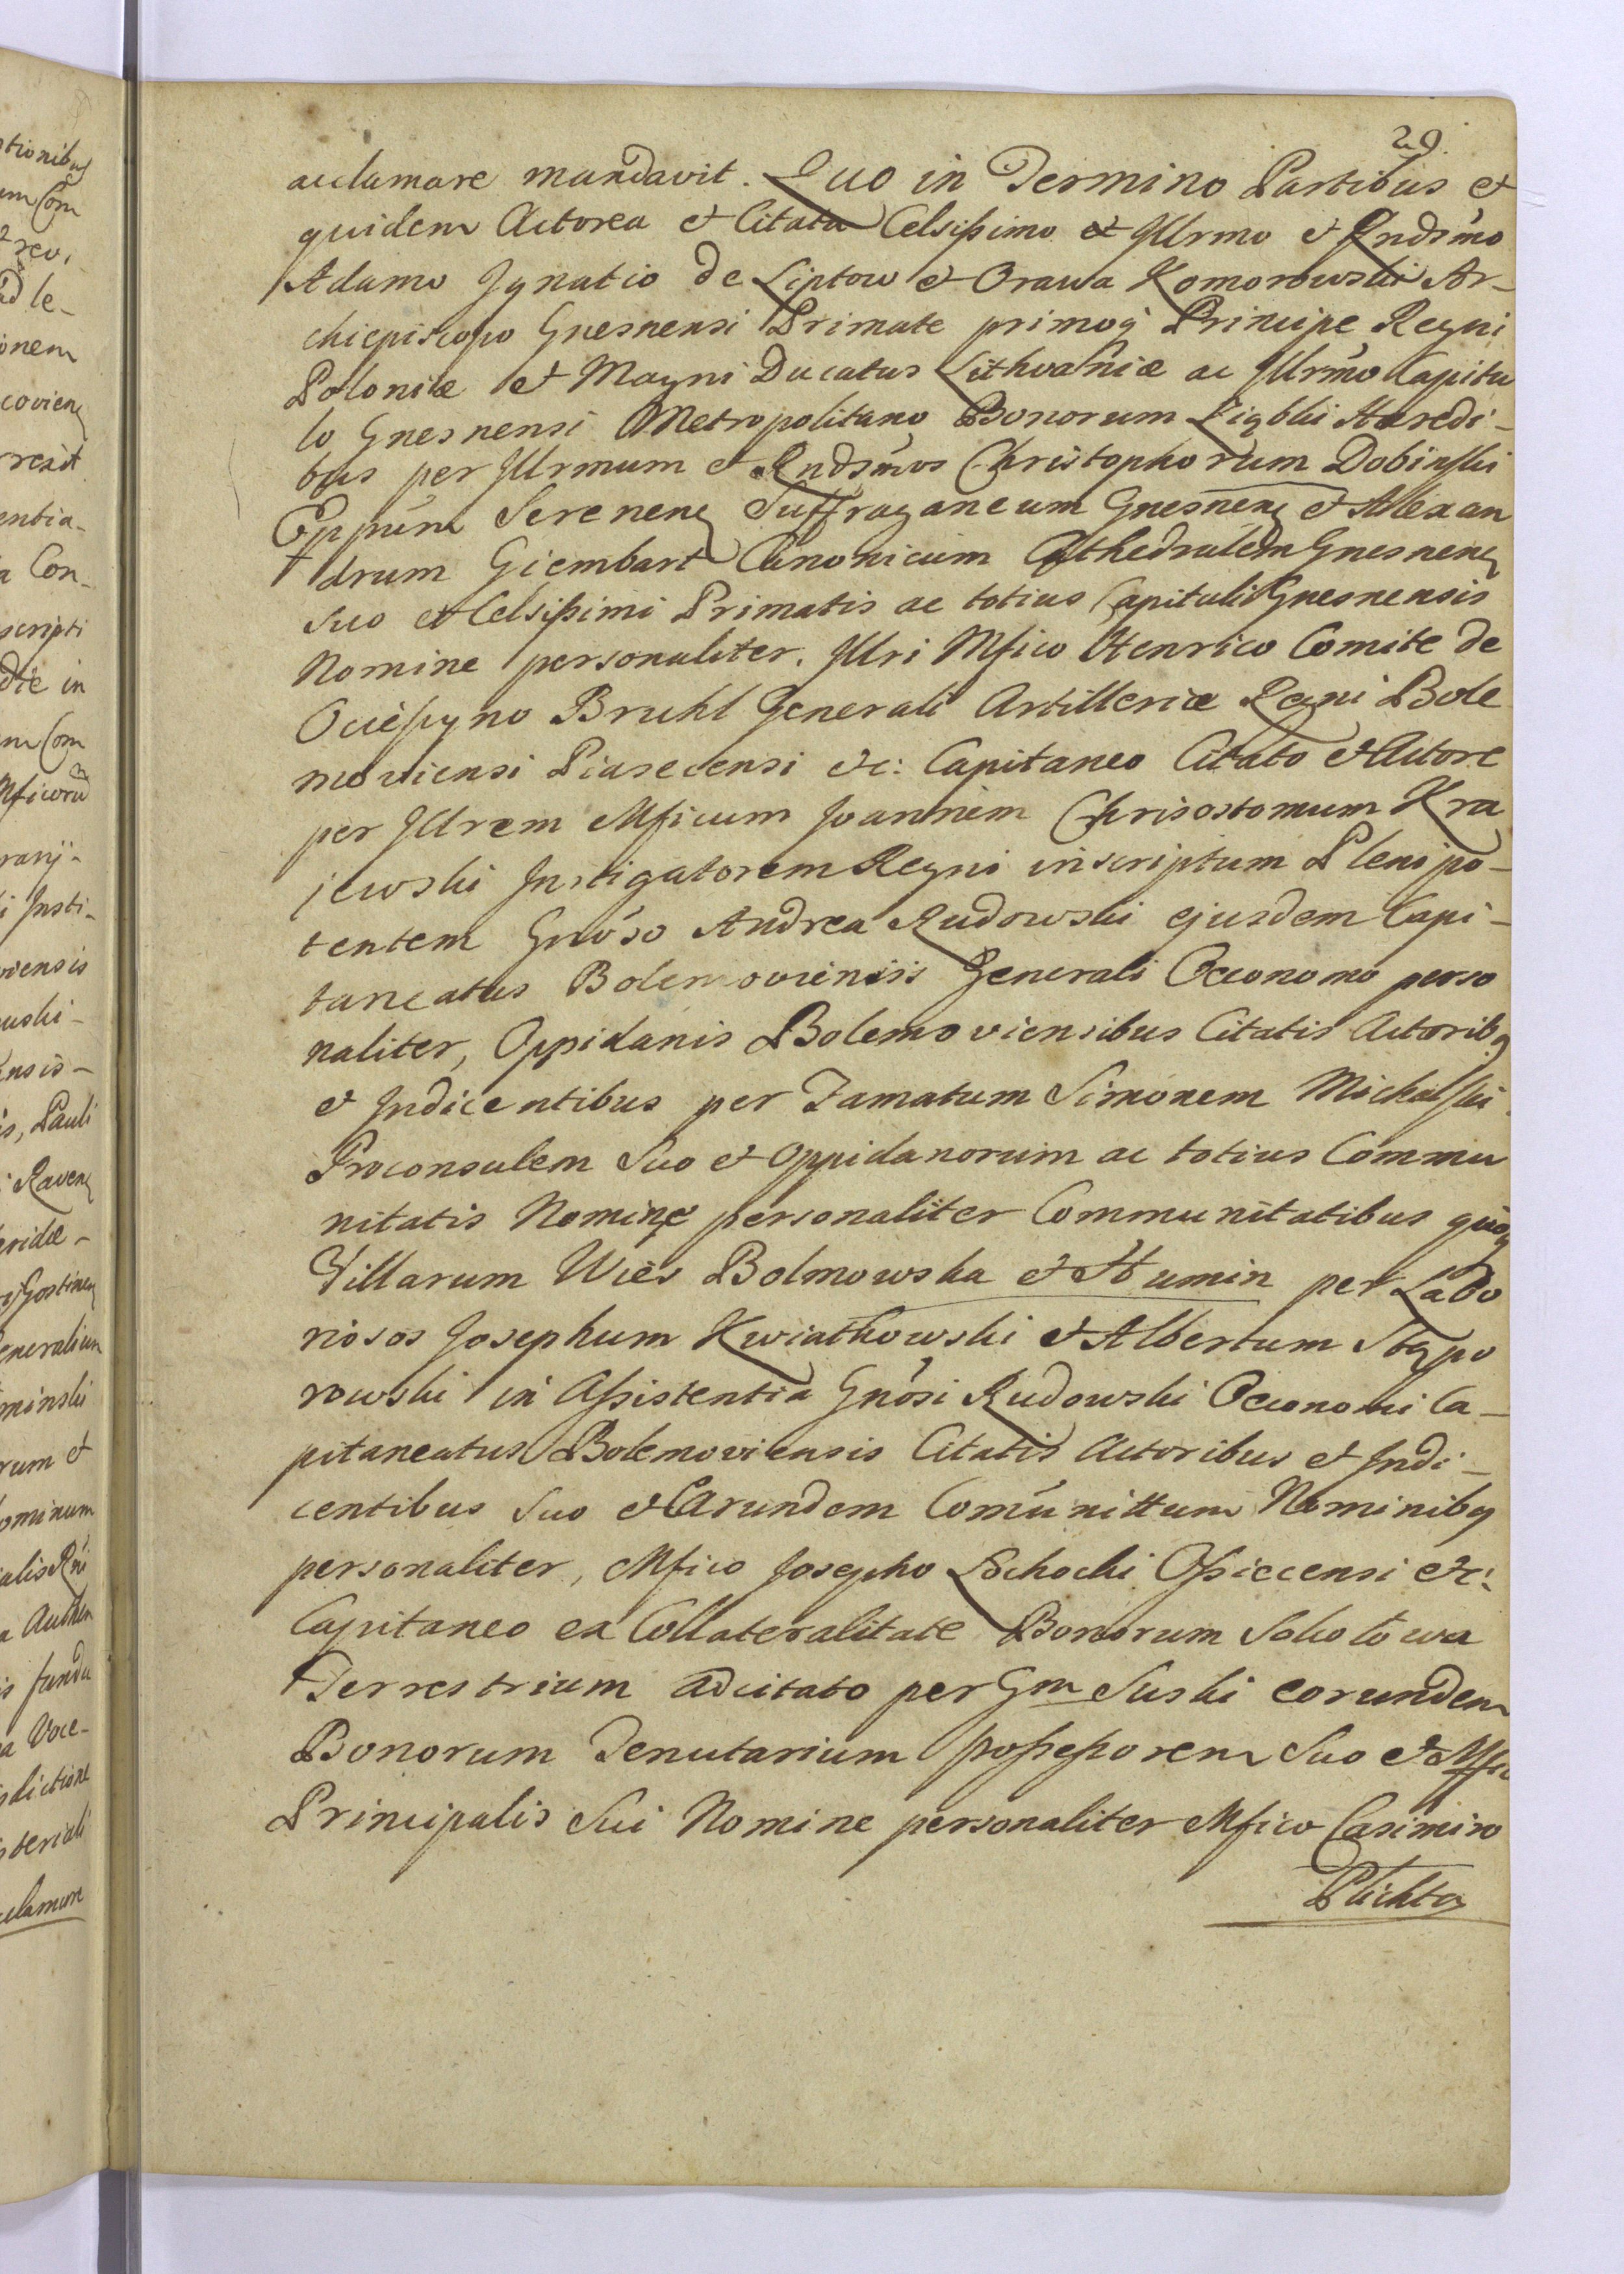 29.
acclamare mandavit. Quo in Termino Partibus et
quidem Actorea et Citata Celsißimo et Jllrmo et Rndsmo
Adamo Jgnatio de Liptow et Orawa Komorowski Ar-
chiepiscopo Gnesnensi Primate primoq Principe Regni
Poloniæ et Magni Ducatus Lithvaniæ ac Jllrmo Capitu
lo Gnesnensi Metropolitano Bonorum Hæredi-
bus per Jllrmum et Rndsmos Christophorum Dobinski
Eppum Serenenq Suffraganeum Gnesnenq et Alexan
drum Giembart Canonicum Cathedralem Gnesnenq
suo et Celsißimi Primatis ac totius Capituli Gnesnensis
Nomine personaliter. Jllri Mfico Henrico Comite de
Ocieszyno Bruhl Generali Artilleriæ Regni Bole
moviensi Piasecensi etc: Capitaneo Citato et Actore
per Jllrem Mficum Joannem Chrisostomum Kra
jewski Jnstigatorem Regni inscriptum Plenipo-
tentem Gnoso Andrea Rudowski ejusdem Capi-
taneatus Bolemoviensis Generali Oeconomo perso
naliter, Oppidanis Bolemoviensibus Citatis Actoribq
et Jndicentibus per Famatum Simonem Michalski
Proconsulem Suo et Oppidanorum ac totius Commu
nitatis Nomine personaliter Communitatibus quoq
Villarum Wies Bolmowska et Humin per Labo
riosos Josephum Kwiatkowski et Albertum Stępo
rowski in Aßistentia Gnosi Rudowski Oeconomi Ca-
pitaneatus Bolemoviensis Citatis Actoribus et Jndi-
centibus suo et Earundem Comunittum Nominibq
personaliter, Mfico Josepho Lochocki Oßiecensi etc:
Capitaneo ex Collateralitate Bonorum Sokołowa
Terrestrium adcitato per Gm Suski eorundem
Bonorum Tenutarium poßeßorem Suo et Mfci
Principalis Sui Nomine personaliter Mfico Casimiro
Plichta